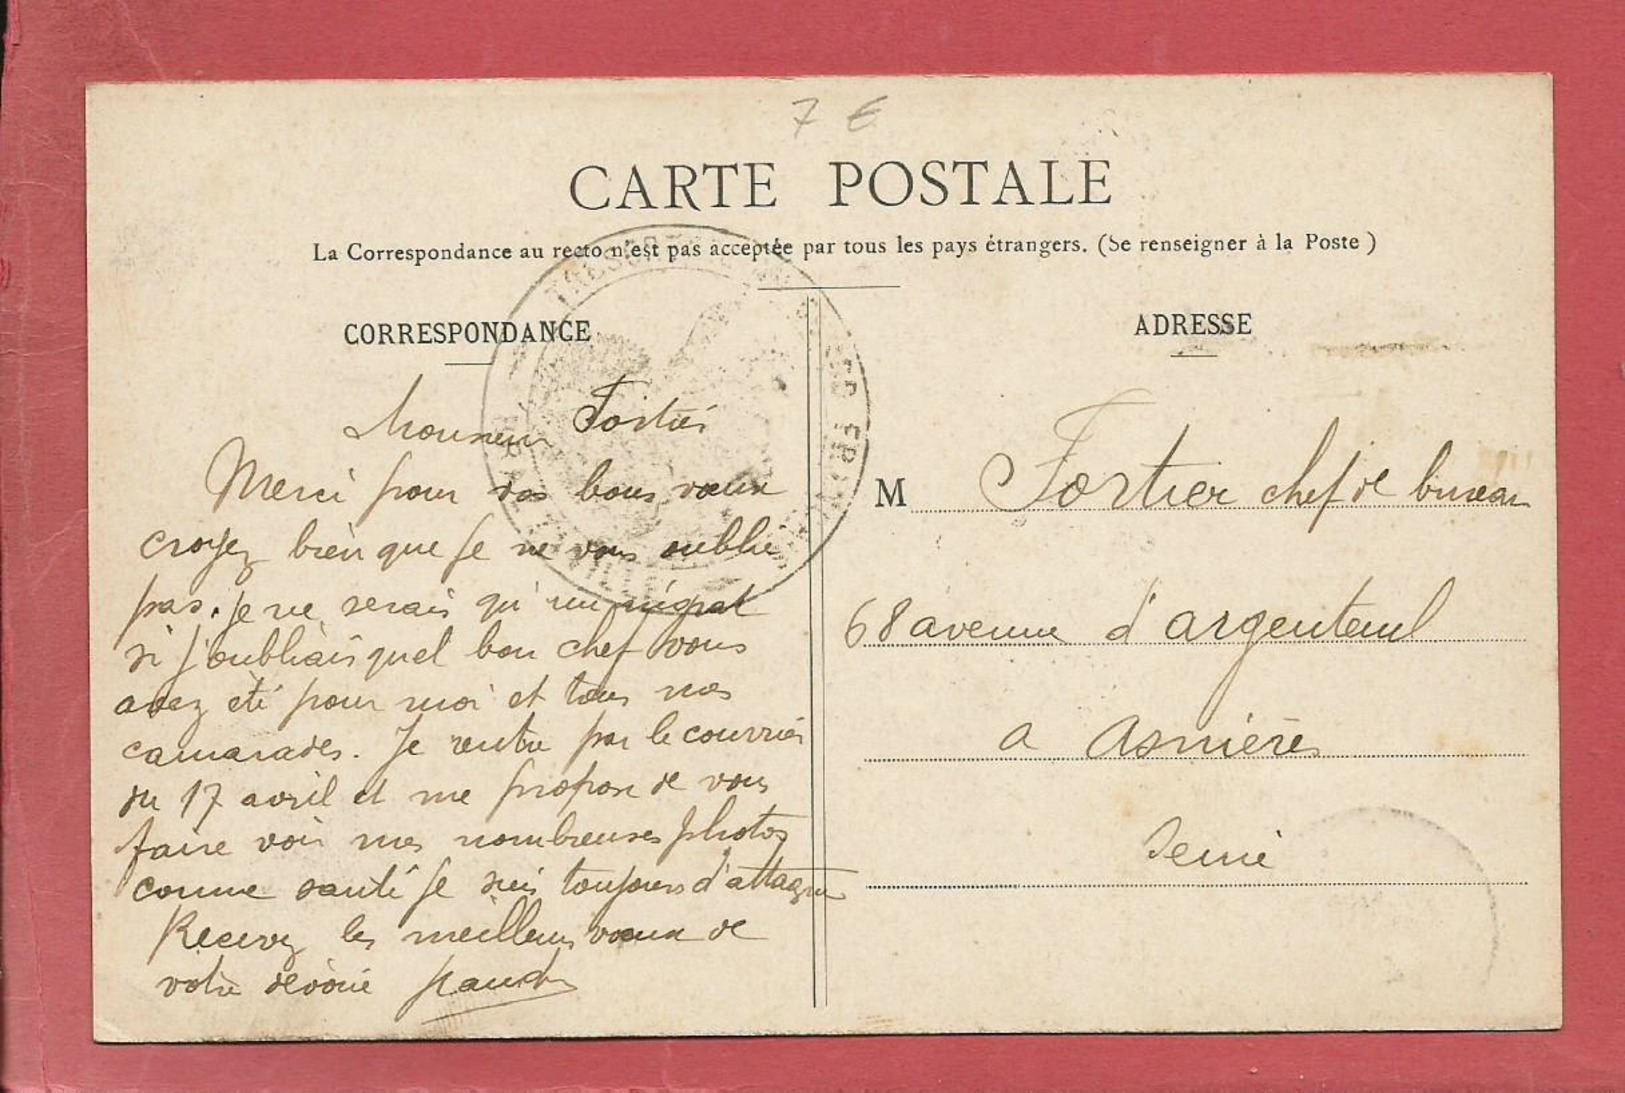 7 €
CARTE POSTALE
La Correspondance au recto n'est pas acceptée par tous les pays étrangers. (Se renseigner à la Poste)
CORRESPONDANCE
Monsieur Fortier
Merci pour vos bons vœux
croyez bien que je ne vous oublie
pas. je ne serais qu'un ingrat
si j'oubliais quel bon chef vous
avez été pour moi et tous nos
camarades. Je rentre par le courrier
du 17 avril et me propose de vous
faire voir mes nombreuses photos
comme santé je suis toujours d'attaque
Recevez les meilleurs vœux de
votre dévoué
ADRESSE
M Fortier chef de bureau
68 avenue d'argenteuil
a Asnières
Seine